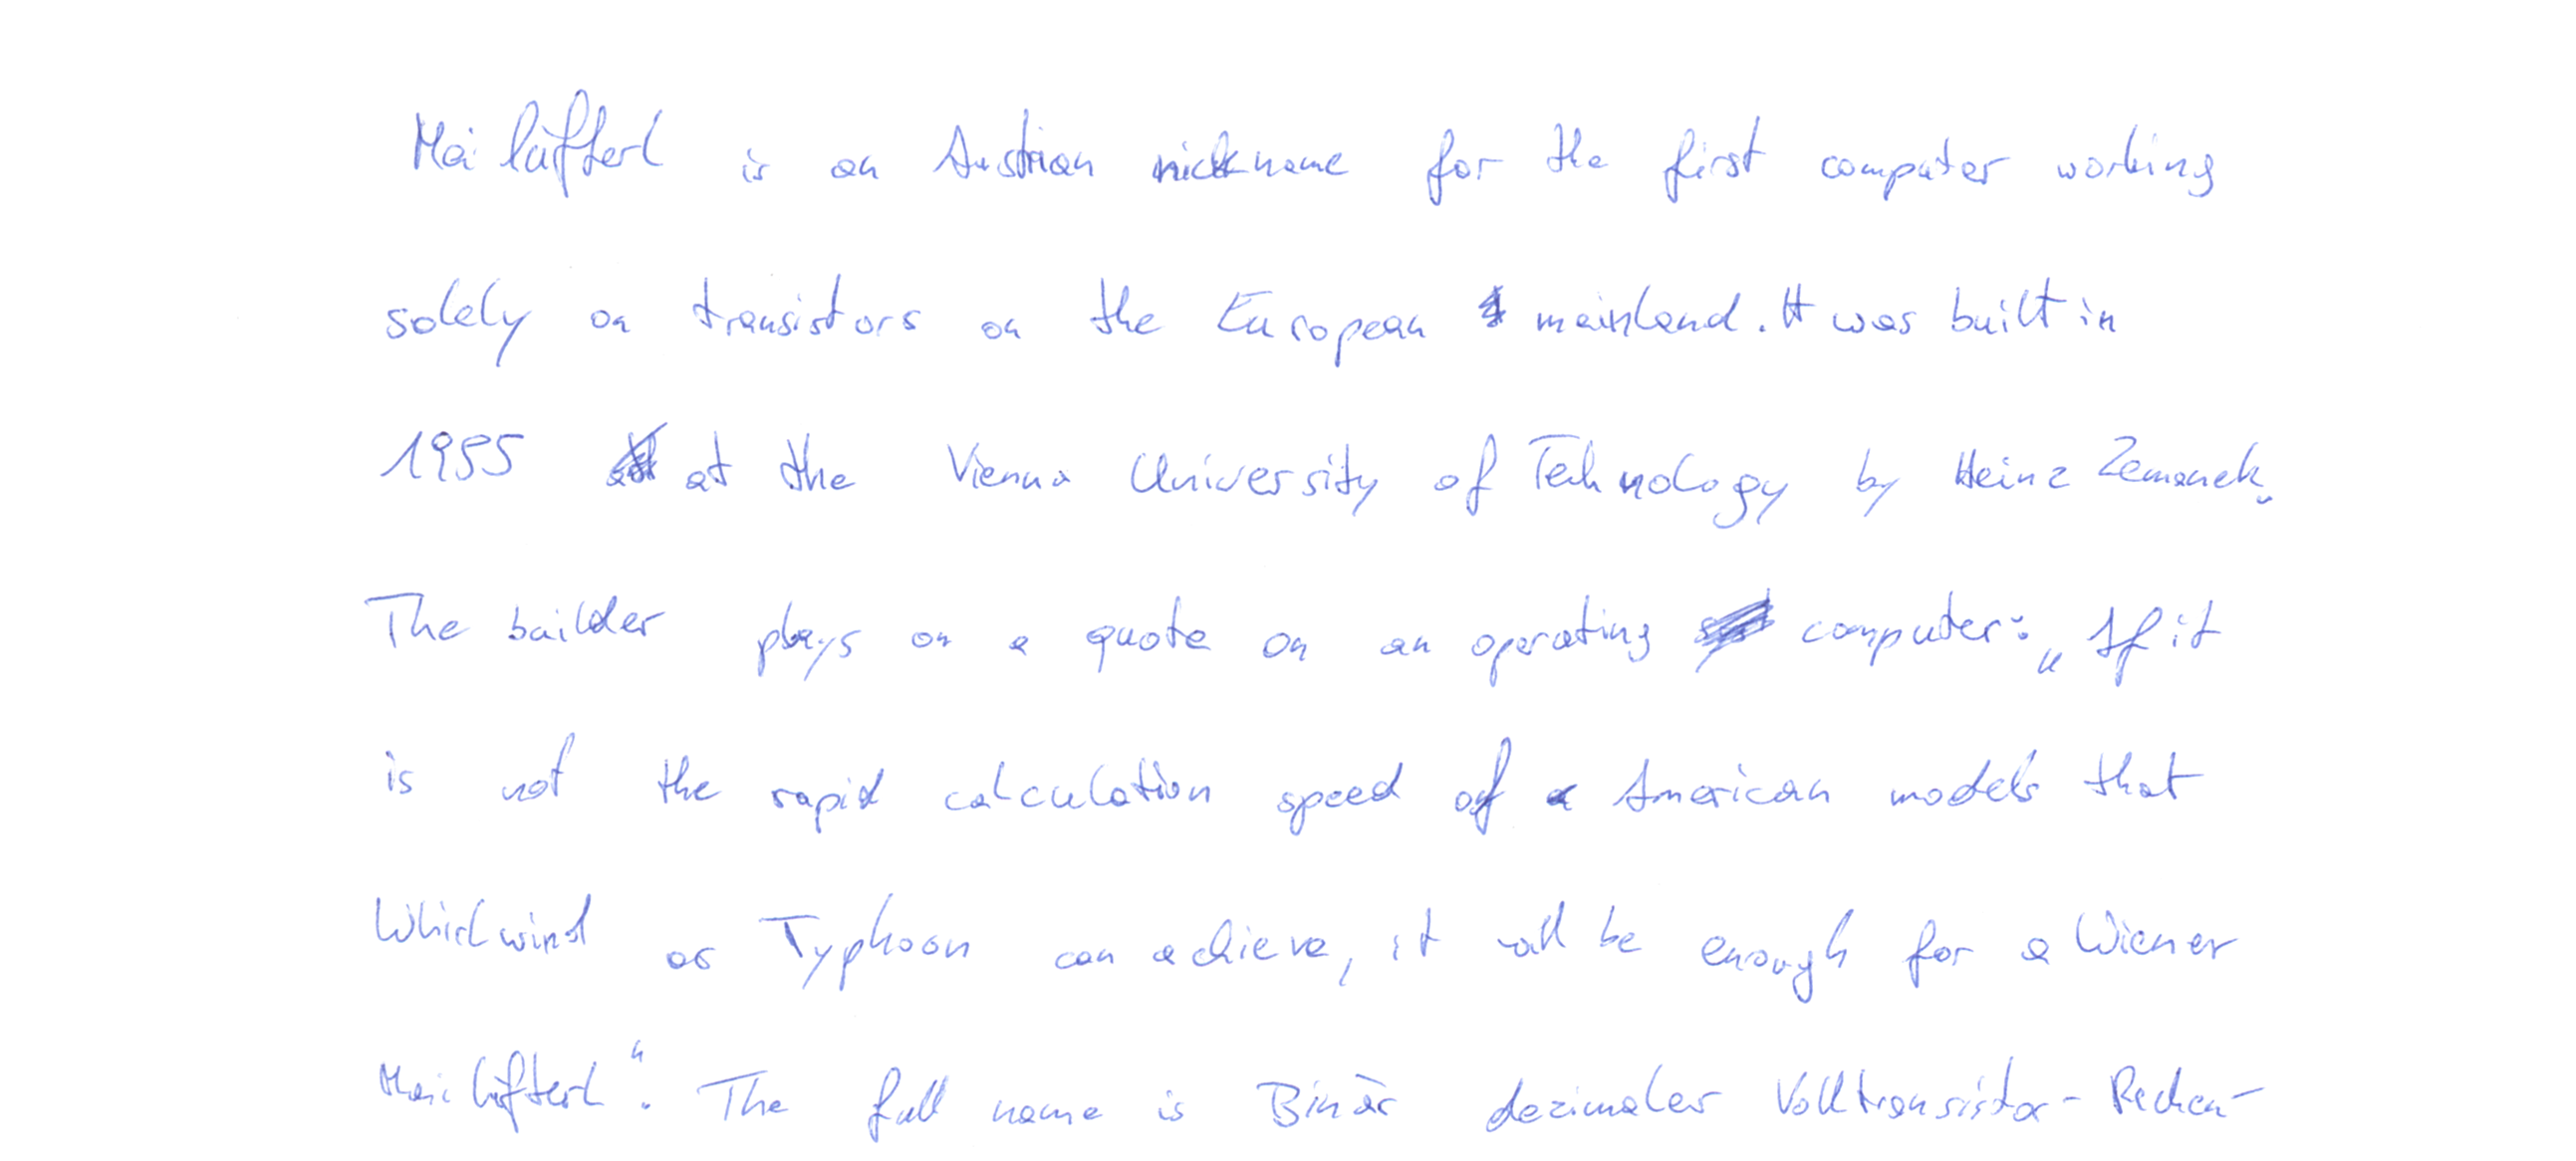 Mailüfterl is an Austrian nickname for the first computer working
solely on transistors on the European mainland. It was built in
1955 at the Vienna University of Technology by Heinz Zemanek.
The builder plays on a quote on an operating computer: „If it
is not the rapid calculation speed of American models that
Whirlwind or Typhoon can achieve, it will be enough for a Wiener
Mailüfterl“. The full name is Binär dezimaler Volltransistor-Rechen-